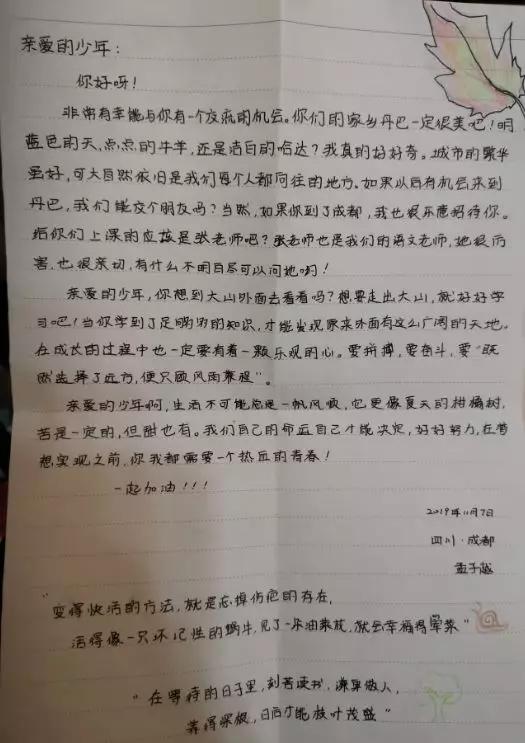 亲爱的少年：
你好呀！
非常有幸能与你有一个交流的机会。你们的家乡丹巴一定很美吧！明
蓝色的天,点点的牛羊,还是洁白的哈达？我真的好好奇。城市的繁华
虽好,可大自然依旧是我们每个人都向往的地方。如果以后有机会来到
丹巴,我们能交个朋友吗？当然,如果你到了成都,我也很乐意招待你。
给你们上课的应该是张老师吧？张老师也是我们的语文老师,她很厉
害,也很亲切,有什么不明白尽可以问她哟！
亲爱的少年,你想到大山外面去看看吗？想要走出大山,就好好学
习吧！当你学到了足够多的知识,才能发现原来外面有这么广阔的天地。
在成长的过程中也一定要有着一颗乐观的心。要拼搏,要奋斗,要“既
然选择了远方,便只顾风雨兼程”。
亲爱的少年啊,生活不可能总是一帆风顺,它更像夏天的柑橘树,
苦是一定的,但甜也有。我们自己的命运自己才能决定,好好努力,在梦
想实现之前,你我都需要一个热血的青春！
一起加油！！！
2019年11月7日
四川·成都
孟子越
“变得快活的方法,就是忘掉伤疤的存在,
活得像一只坏记性的蜗牛,见了一朵油菜花,就会幸福得晕菜”
“在等待的日子里,刻苦读书,谦卑做人,
养得深根,日后才能枝叶茂盛”